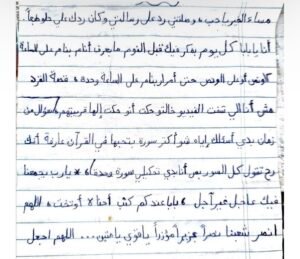 مساء الخير يا حب، وصلتني رد على رسالتي وكان ردك علي حلو طبعاً.
أنا يا بابا كل يوم بفكر فيك قبل النوم ما بعرف أنام بنام على الساعة
حتى أمرار بنام على الساعة وحدة، قصة القرد
مش أنا اللي شفت الفيديو خالتو حكت إلها سؤال من
زمان بدي أسئلك إياه شو أكثر سورة بتحبها في القرآن عارفة أنك
رح تقول كل السور بس أنا بدي تحكيلي سورة وحدة، يارب يجمعنا
فيك عاجل غير آجل، يا بابا عندكم كتب أحنا لا أو تخت، اللهم
انصر شعبنا نصراً عزيزاً مؤزراً يا قوي يا متين... اللهم اجعل